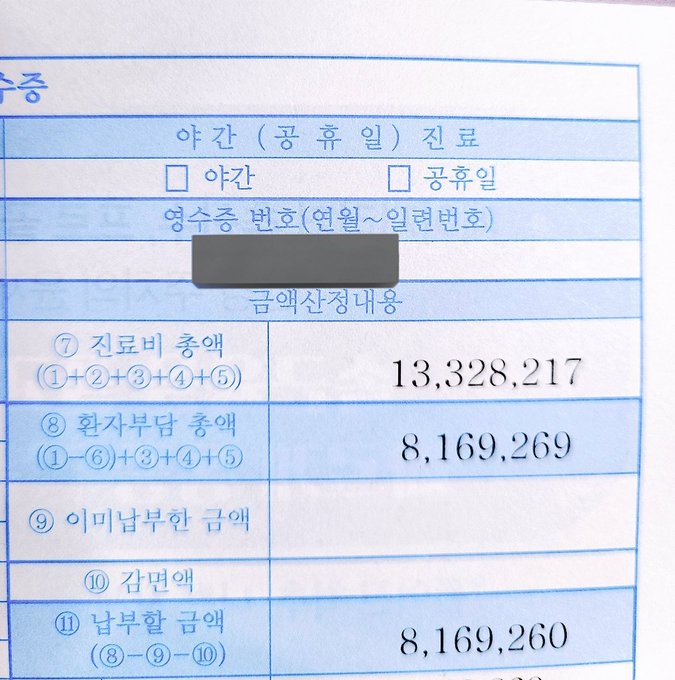 수증
야간 (공휴일) 진료
□ 야간 □ 공휴일
영수증 번호(연월~일련번호)
금액산정내용
⑦ 진료비 총액
(①+②+③+④+⑤)
13,328,217
⑧ 환자부담 총액
(①-⑥)+③+④+⑤
8,169,269
⑨ 이미납부한 금액
⑩ 감면액
⑪ 납부할 금액
(⑧-⑨-⑩)
8,169,260